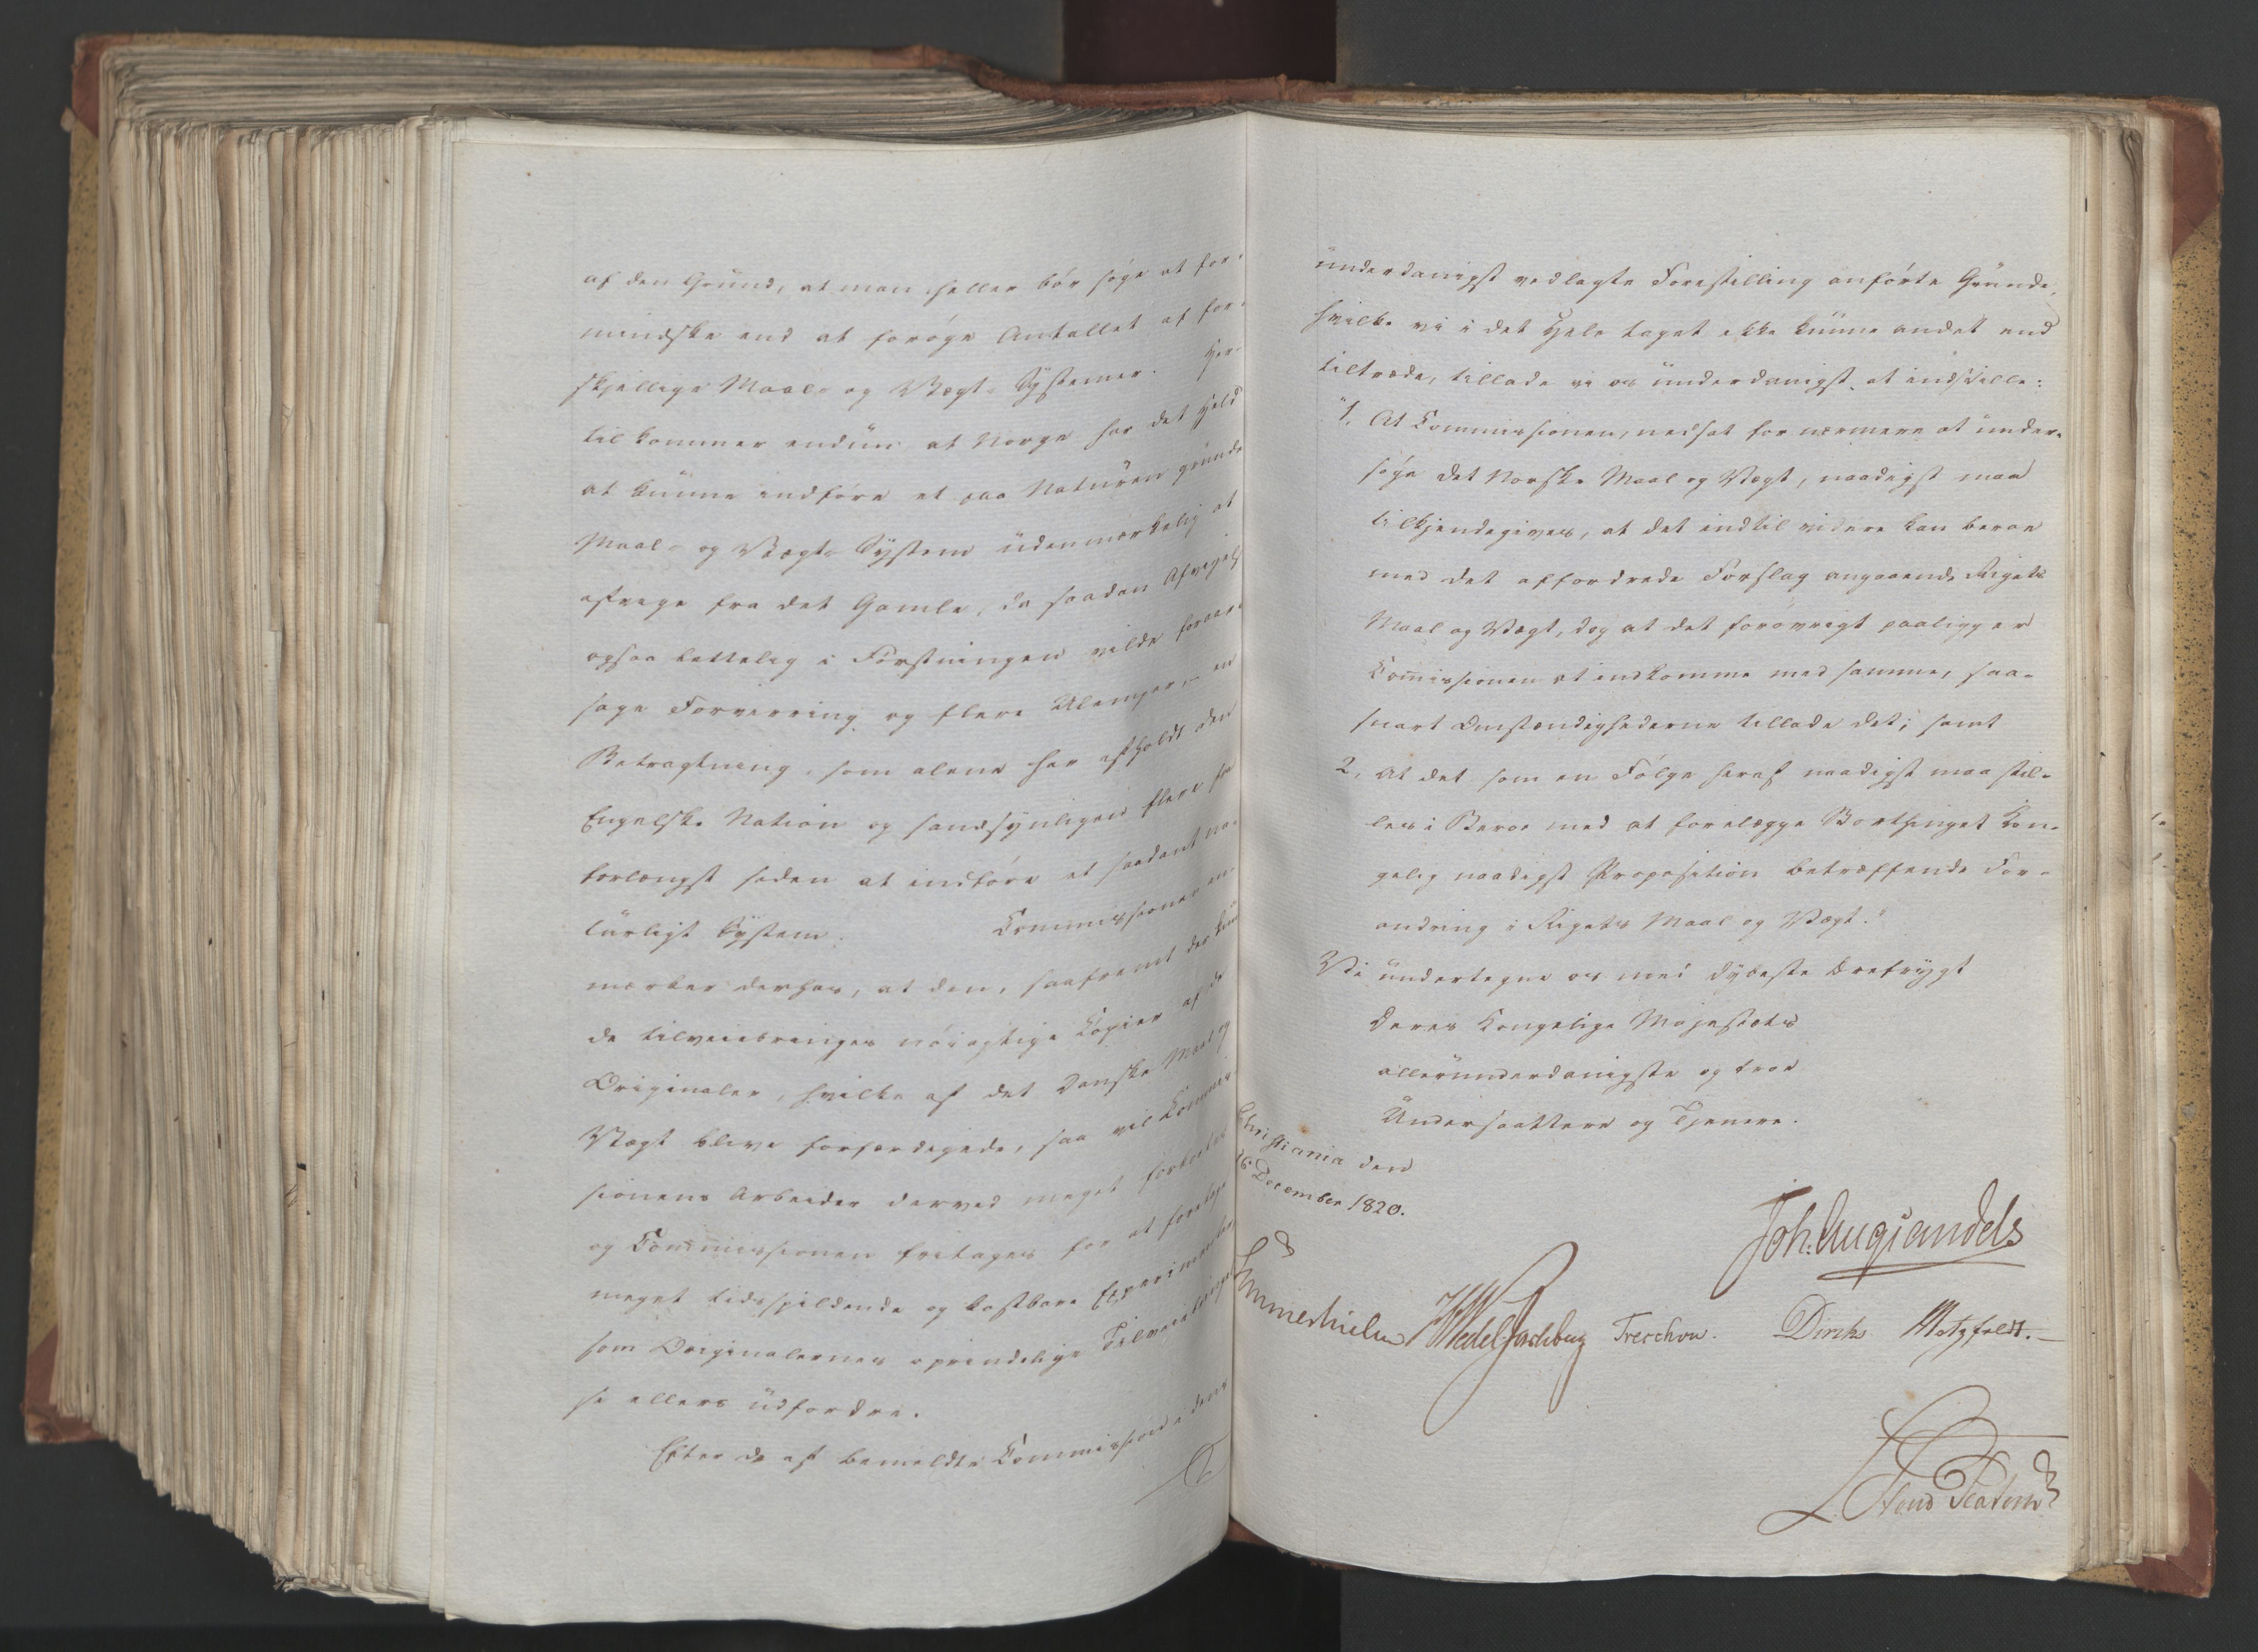 af den Grund, at man heller bør søge at for-
mindske end at forøge Antallet af for-
skjellige Maal- og Vægt-Systemer. Her-
til kommer endnu at Norge har det Held
at kunne indføre et paa Naturen grunde
Maal- og Vægt-System uden mærkelig at
afvige fra det Gamle, da saadan Afvigels
ogsaa lettelig i Førstningen vilde foraar-
sage Forvirring og flere Ulemper, en
Betragtning, som alene har afholdt den
Engelske Nation og sandsynligvis flere fra
forlængst siden at indføre et saadant na-
turligt System. Commissionen an-
mærker derhos, at den, saafremt der kun
de tilveiebringes nøiagtige Copier af de
Originaler, hvilke af det Danske Maal og
Vægt blive forfærdigede, saa vil Commis-
sionens Arbeider derved meget forkortes
og Commissionen fritages for at foretage
meget tidsspildende og kostbare Experimenter
som Originalernes oprindelige Tilveiebringel
se ellers udfordre.
Efter de af bemeldte Commission i dens
underdanigst vedlagte Forestilling anførte Grunde,
hvilke vi i det Hele taget ikke kunne andet end
tiltræde, tillade vi os underdanigst at indstille:
"1, At Commissionen, nedsat for nærmere at under-
søge det Norske Maal og Vægt, naadigst maa
tilkjendegives, at det indtil videre kan beroe
med det affordrede Forslag angaaende Rigets
Maal og Vægt, dog at det forøvrigt paaligger
Commissionen at indkomme med samme, saa-
snart Omstændighederne tillade det; samt
2, At det som en Følge heraf naadigst maa stil-
les i Beroe med at forelægge Storthinget Kon-
gelig naadigst Proposition betræffende For-
andring i Rigets Maal og Vægt."
Vi undertegne os med dybeste Ærefrygt
Deres Kongelige Majestæts
allerunderdanigste og troe
Undersaattere og Tjenere.
Christiania den
16 December 1820.
Joh: Aug: Sandels
Sommerhielm HWedel Jarlsberg Treschow. Diriks Motzfeldt.